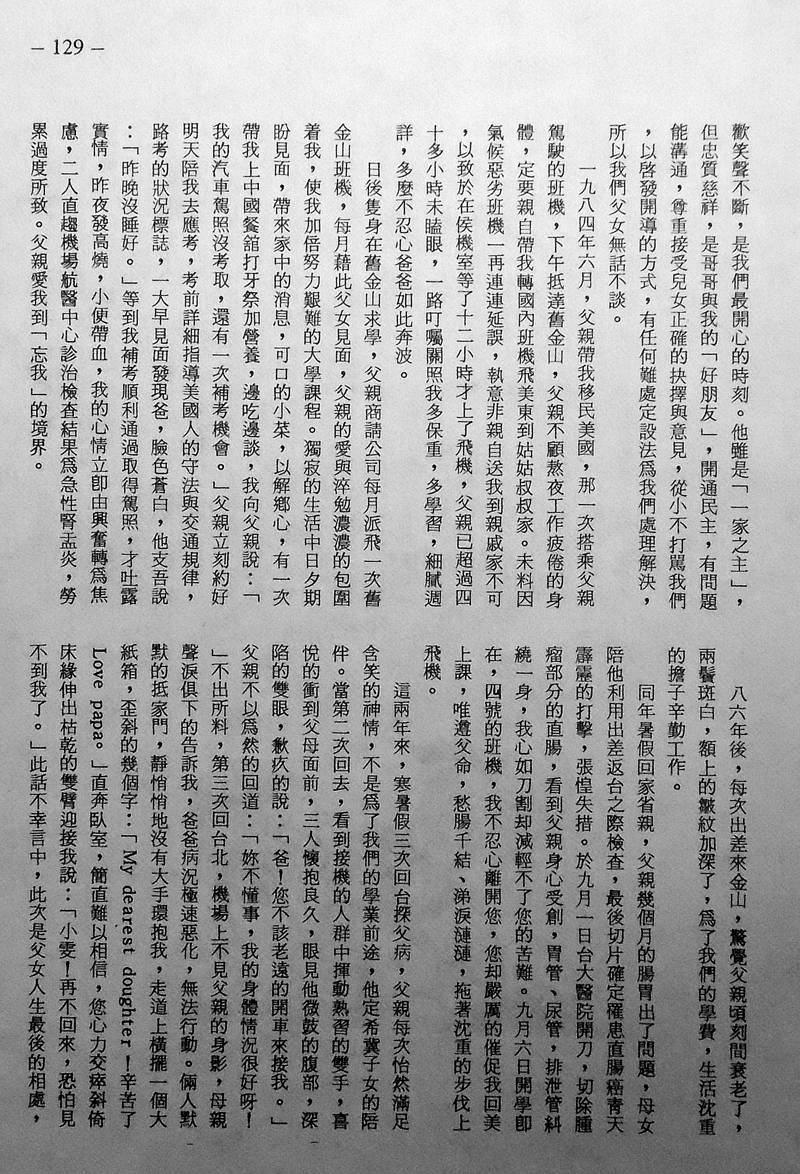 – 129 –
歡笑聲不斷，是我們最開心的時刻。他雖是「一家之主」，
但忠質慈祥，是哥哥與我的「好朋友」，開通民主，有問題
能溝通，尊重接受兒女正確的抉擇與意見，從小不打罵我們
，以啓發開導的方式，有任何難處定設法爲我們處理解決，
所以我們父女無話不談。
一九八四年六月，父親帶我移民美國，那一次搭乘父親
駕駛的班機，下午抵達舊金山，父親不顧熬夜工作疲倦的身
體，定要親自帶我轉國內班機飛美東到姑姑叔叔家。未料因
氣候惡劣班機一再連連延誤，執意非親自送我到親戚家不可
，以致於在侯機室等了十二小時才上了飛機，父親已超過四
十多小時未瞌眼，一路叮囑關照我多保重，多學習，細膩週
詳，多麼不忍心爸爸如此奔波。
日後隻身在舊金山求學，父親商請公司每月派飛一次舊
金山班機，每月藉此父女見面，父親的愛與淬勉濃濃的包圍
着我，使我加倍努力艱難的大學課程。獨寂的生活中日夕期
盼見面，帶來家中的消息，可口的小菜，以解鄉心，有一次
帶我上中國餐舘打牙祭加營養，邊吃邊談，我向父親說：「
我的汽車駕照沒考取，還有一次補考機會。」父親立刻約好
明天陪我去應考，考前詳細指導美國人的守法與交通規律，
路考的狀況標誌，一大早見面發現爸，臉色蒼白，他支吾說
：「昨晚沒睡好。」等到我補考順利通過取得駕照，才吐露
實情，昨夜發高燒，小便帶血，我的心情立卽由興奮轉爲焦
慮，二人直趨機場航醫中心診治檢查結果爲急性腎盂炎，勞
累過度所致。父親愛我到「忘我」的境界。
八六年後，每次出差來金山，驚覺父親頃刻間衰老了，
兩鬢斑白，額上的皺紋加深了，爲了我們的學費，生活沈重
的擔子辛勤工作。
同年暑假回家省親，父親幾個月的腸胃出了問題，母女
陪他利用出差返台之際檢查，最後切片確定罹患直腸癌青天
霹靂的打擊，張惶失措。於九月一日台大醫院開刀，切除腫
瘤部分的直腸，看到父親身心受創，胃管、尿管，排泄管糾
繞一身，我心如刀割却減輕不了您的苦難。九月六日開學卽
在，四號的班機，我不忍心離開您，您却嚴厲的催促我回美
上課，唯遵父命，愁腸千結、涕淚漣漣，拖著沈重的步伐上
飛機。
這兩年來，寒暑假三次回台探父病，父親每次怡然滿足
含笑的神情，不是爲了我們的學業前途，他定希冀子女的陪
伴。當第二次回去，看到接機的人群中揮動熟習的雙手，喜
悅的衝到父母面前，三人懷抱良久，眼見他微鼓的腹部，深
陷的雙眼，歉疚的說：「爸！您不該老遠的開車來接我。」
父親不以爲然的回道：「妳不懂事，我的身體情況很好呀！
」不出所料，第三次回台北，機場上不見父親的身影，母親
聲淚俱下的告訴我，爸爸病況極速惡化，無法行動。倆人默
默的抵家門，靜悄悄地沒有大手環抱我，走道上橫擺一個大
紙箱，歪斜的幾個字：「My dearest doughter！辛苦了
Love papa。」直奔臥室，簡直難以相信，您心力交瘁斜倚
床緣伸出枯乾的雙臂迎接我說：「小雯！再不回來，恐怕見
不到我了。」此話不幸言中，此次是父女人生最後的相處，